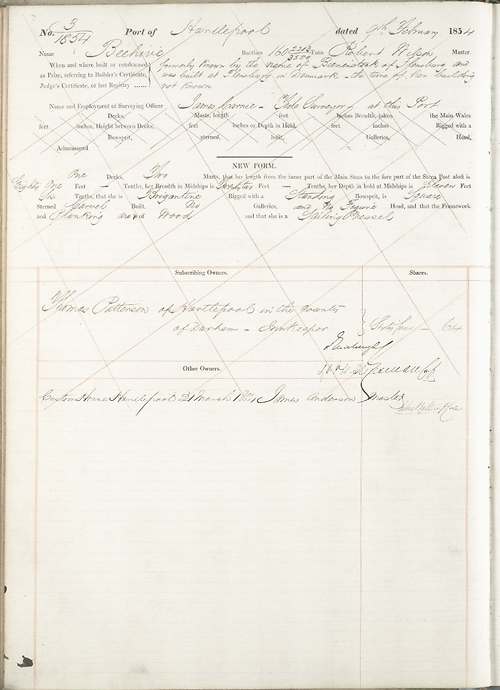 No. 3/1854 Port of Hartlepool dated 9th February 1854
Name Beehive Burthen 160 2218/3500 Tons Robert Wilson Master
When and where built or condemned as Prize, referring to Builder's Certificate, Judge's Certificate, or last Registry formerly known by the name of of Flensburg and was built at Flensburg in Denmark the time of her building not known
Name and Employment of Surveying Officer James Tide Surveyor at this Port
Decks, Masts, length feet inches Breadth, taken the Main Wales
feet inches, Height between Decks, feet inches or Depth in Hold, feet inches Rigged with a
Bowsprit, sterned, built, Galleries, Head,
Admeasured
NEW FORM.
One Decks, Two Masts, that her length from the inner part of the Main Stem to the fore part of the Stern Post aloft is
Eighty One Feet — Tenths, her Breadth in Midships is Feet — Tenths, her Depth in hold at Midships is Eleven Feet
Tenths, that she is Brigantine Rigged with a Standing Bowsprit, is Square
Sterned Carvel Built, No Galleries, and No Figure Head, and that the Framework
and Planking are of Wood and that she is a Sailing Vessel
Subscribing Owners. Shares.
Thomas Patterson of Hartlepool in the County
of Durham — Innkeeper Sixty four — 64
Other Owners.
Custom House Hartlepool 21 March 1854 James Anderson Master